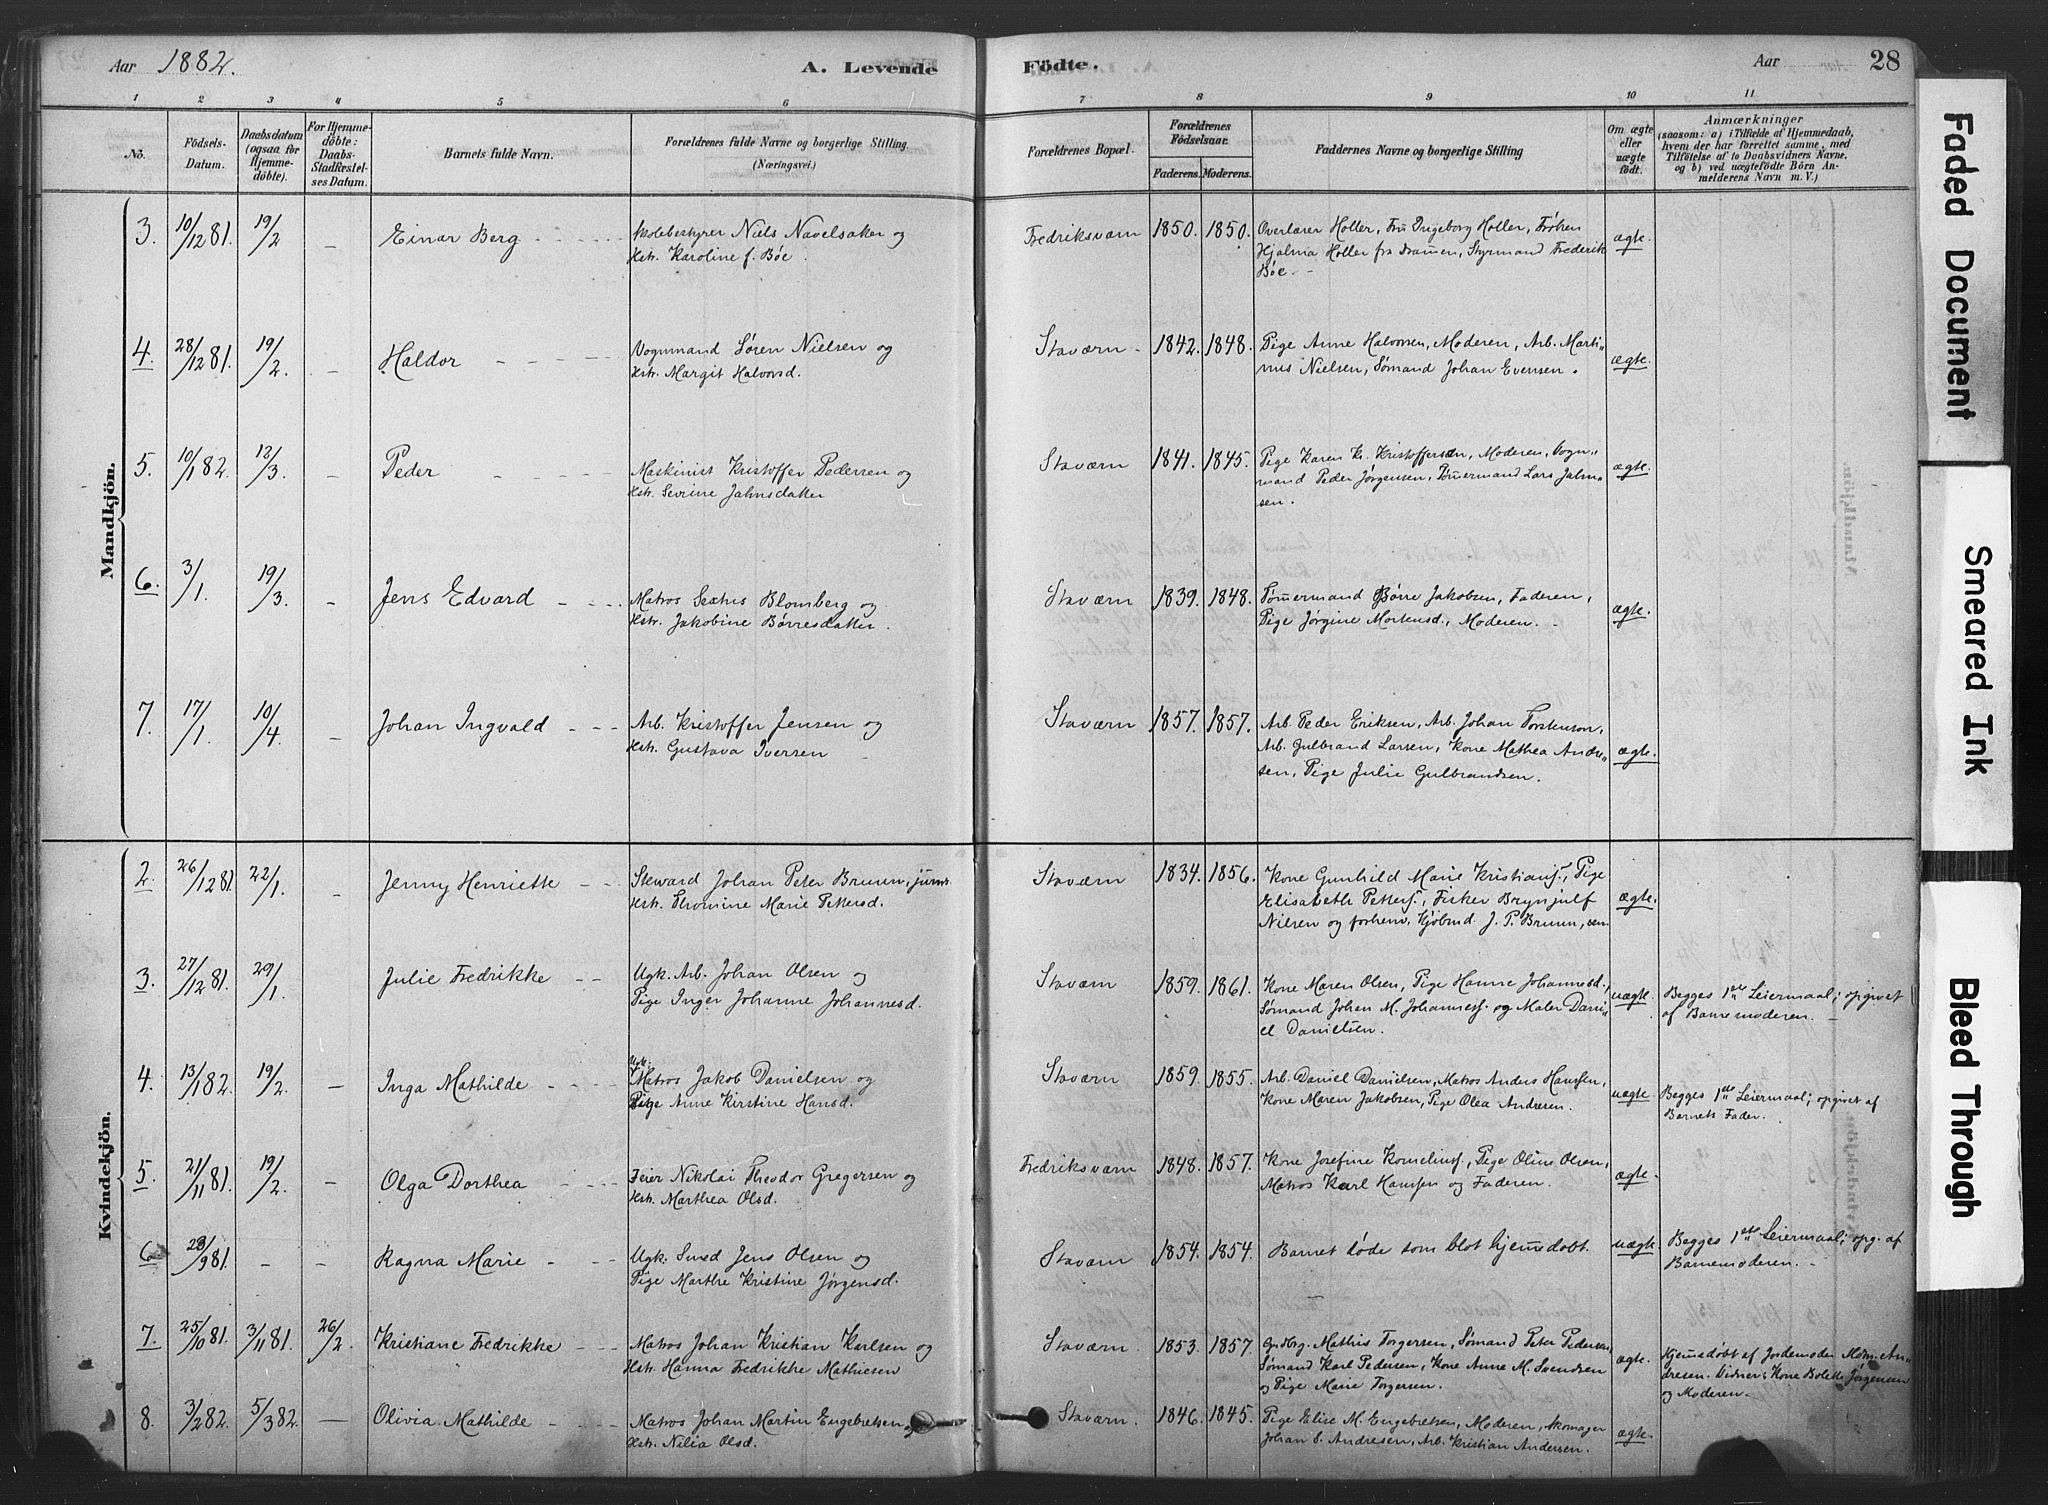 Aar 1882. A. Levende Födte. Aar 28
1 2 3 4 5 6 7 8 9 10 11
No.
Födsels-
Datum.
Daabsdatum
(ogsaa for
Hjemme-
döbte).
For Hjemme-
döbte:
Daabs-
Stadfæstel-
ses Datum.
Barnets fulde Navn.
Forældrenes fulde Navne og borgerlige Stilling
(Næringsvei.)
Forældrenes Bopæl.
Forældrenes
Födselsaar.
Faderens. Moderens.
Faddernes Navne og borgerlige Stilling
Om ægte
eller
uægte
födt.
Anmærkninger
(saasom: a) i Tilfælde af Hjemmedaab,
hvem der har forrettet samme, med
Tilföielse af to Daabsvidners Navne.
og b) ved uægtefödte Börn An-
melderens Navn m. V.)
Mandkjön.
3. 10/12 81. 19/2 - Einar Berg
Skolebestyrer Niels Navelsaker og
Hstr. Karoline f. Bøe.
Fredriksværn 1850. 1850.
Overlærer Holler, Fru Ingeborg Holler, Frøken
Hjalma Holler fra Drammen, Styrmand Frederik
Bøe.
ægte.
4. 28/12 81. 19/2. - Haldor
Vognmand Søren Nielsen og
Hstr. Margit Halvorsd.
Staværn 1842. 1848.
Pige Anne Halvorsen, Moderen, Arb. Marti-
nus Nielsen, Sømand Johan Evensen.
ægte.
5. 10/1 82. 12/3. - Peder
Maskinist Kristoffer Pedersen og
Hstr. Sevrine Jahnsdatter
Staværn 1841. 1845.
Pige Karen Kr. Kristoffersen, Moderen, Vogn-
mand Peder Jørgensen, Tømermand Lars Jahn-
sen.
ægte.
6. 3/1. 19/3. - Jens Edvard
Matros Sextus Blomberg og
Hstr. Jakobine Børresdatter.
Staværn 1839. 1848.
Tømermand Børre Jakobsen, Faderen,
Pige Jørgine Mortensd., Moderen.
ægte.
7. 17/1. 10/4. - Johan Ingvald
Arb. Kristoffer Jensen og
Hstr. Gustava Iversen
Staværn 1857. 1857.
Arb. Peder Eriksen, Arb. Johan Torstenson,
Arb. Gulbrand Larsen, Kone Mathea Andre-
sen, Pige Julie Gulbrandsen.
ægte.
Kvindekjön.
2. 26/12 81. 22/1. - Jenny Henriette
Steward Johan Peter Bruun, junr.
Hstr. Thomine Marie Pettersd.
Staværn 1834. 1856.
Kone Gunhild Marie Kristians., Pige
Elisabeth Petters., Fisker Brynjulf
Nilsen og forhenv. Kjøbmd. J. P. Bruun, sen
ægte.
3. 27/12 81. 29/1. Julie Fredrikke
Ugk. Arb. Johan Olsen og
Pige Inger Johanne Johannesd.
Staværn 1859. 1861.
Kone Maren Olsen, Pige Hanne Johannesd.,
Sømand Johan M. Johanness. og Maler Dani-
el Danielsen.
uægte.
Begges 1ste Leiermaal; opgivet
af Barnemoderen.
4. 13/1 82. 19/2. - Inga Mathilde
Ugk.
Matros Jakob Danielsen og
Pige Anne Kirstine Hansd.
Staværn 1859. 1855.
Arb. Daniel Danielsen, Matros Anders Hanssen,
Kone Maren Jakobsen, Pige Olea Andresen.
uægte.
Begges 1ste Leiermaal; opgivet af
Barnets Fader.
5. 21/11 81. 19/2. - Olga Dorthea
Feier Nikolai Theodor Gregersen og
Hstr. Marthea Olsd.
Fredriksværn 1848. 1857.
Kone Josefine Kornelius., Pige Oline Olsen,
Matros Karl Hanssen og Faderen.
ægte.
6. 23/9 81. - - Ragna Marie
Ugk. Smsd Jens Olsen og
Pige Marthe Kristine Jørgensd.
Staværn 1854. 1854.
Barnet døde som blot hjemdøbt.
uægte.
Begges 1ste Leiermaal; opg. af
Barnemoderen.
7. 25/10 81. 3/11 81. 26/2. Kristiane Fredrikke
Matros Johan Kristian Karlsen og
Hstr. Hanna Fredrikke Mathiesen
Staværn 1853. 1857.
Gudbrg. Mathis Torgersen, Sømand Peter Pedersen,
Sømand Karl Pedersen, Kone Anne M. Svendsen
og Pige Marie Torgersen.
ægte.
Hjemdøbt af Jordemoder Mdm. An-
dresen. Vidner: Kone Bolette Jørgensen
og Moderen.
8. 3/2 82. 5/3 82. - Olivia Mathilde
Matros Johan Martin Engebretsen og
Hstr. Nilia Olsd.
Staværn. 1846. 1845.
Pige Elise M. Engebretsen, Moderen, Skomager
Johan E. Andresen, Arb. Kristian Andersen.
ægte.
Faded Document
Smeared Ink
Bleed Through